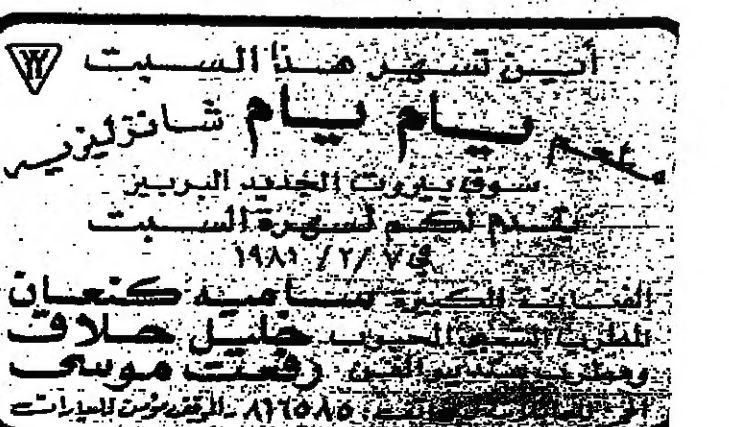 أين تسهر هذا السبت
مطعم يام يام شانزليزيه
سوق بيروت الجديد البربير
يقدم لكم لسهرة السبت
في ٧ /٢/ ١٩٨١
الفنانة الكبيرة ساميه كنعان
المطرب المحبوب خليل حلاق
ومطرب رفعت موسى
٨١٦٥٨٥ - الموقف مؤمن للسيارات